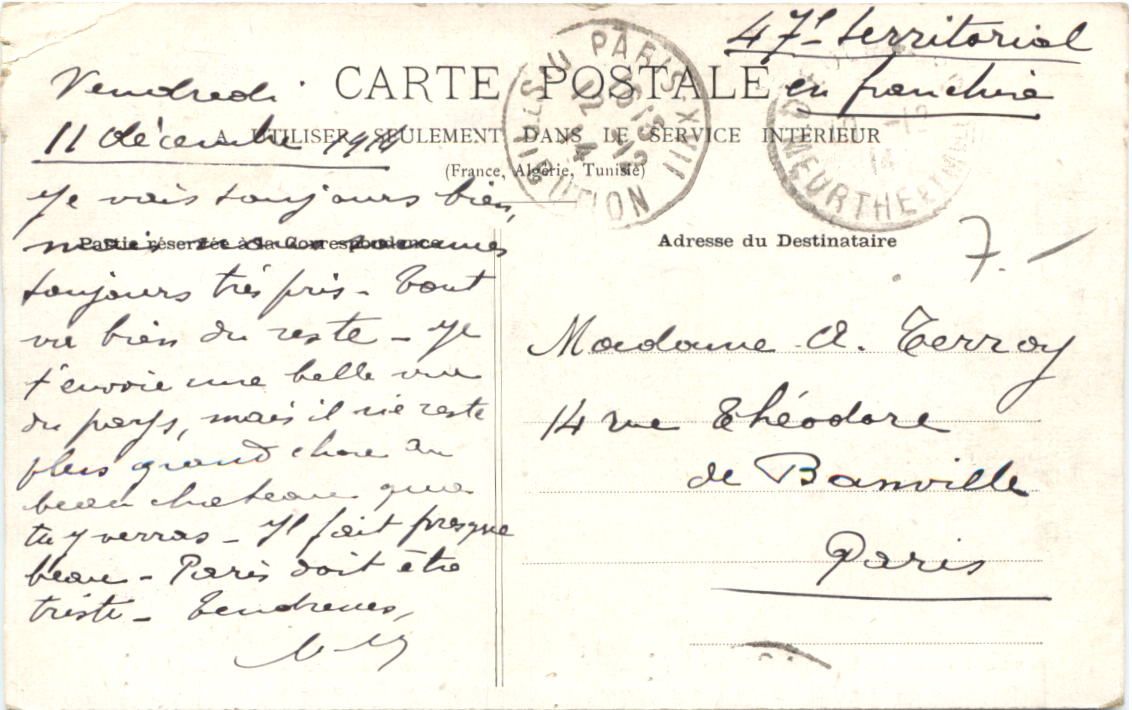 47e territorial
en franchise
CARTE POSTALE
A UTILISER SEULEMENT DANS LE SERVICE INTÉRIEUR
(France, Algérie, Tunisie)
PARIS XVII
DISTRIBUTION
MEURTHE ET M
Vendredi
11 décembre 1914
Je vais toujours bien,
Partie réservée à la Correspondance
mais nous sommes
toujours très pris - Tout
va bien du reste - Je
t'envoie une belle vue
du pays, mais il ne reste
plus grand chose du
beau chateau que
tu y verras - Il fait presque
beau - Paris doit être
triste - Tendresses,
Adresse du Destinataire
7. -
Madame A. Terroy
14 rue Théodore
de Banville
Paris